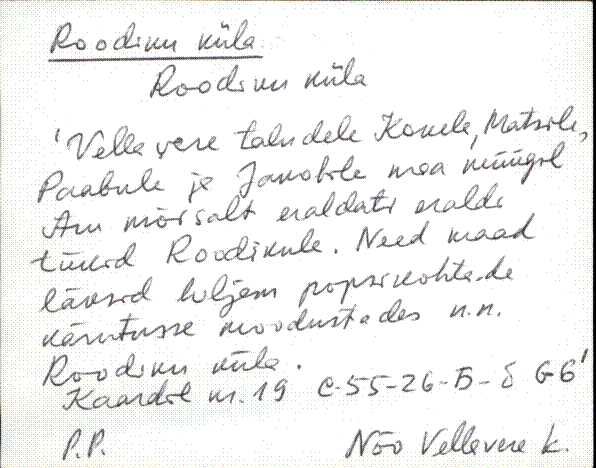 Roodiku küla
Roodiku küla
'Vellavere taludele Kokele, Matsile,
Paabule ja Jakobile maa müügil
Aru mõisalt eraldati eraldi
tükid Roodikule. Need maad
läksid hiljem popsikohtade
kärutusse moodustades n.n.
Roodiku küla.
Kaardil nr. 19 C-55-26-Б-δ G6'
P.P. Nõo Vellavere k.